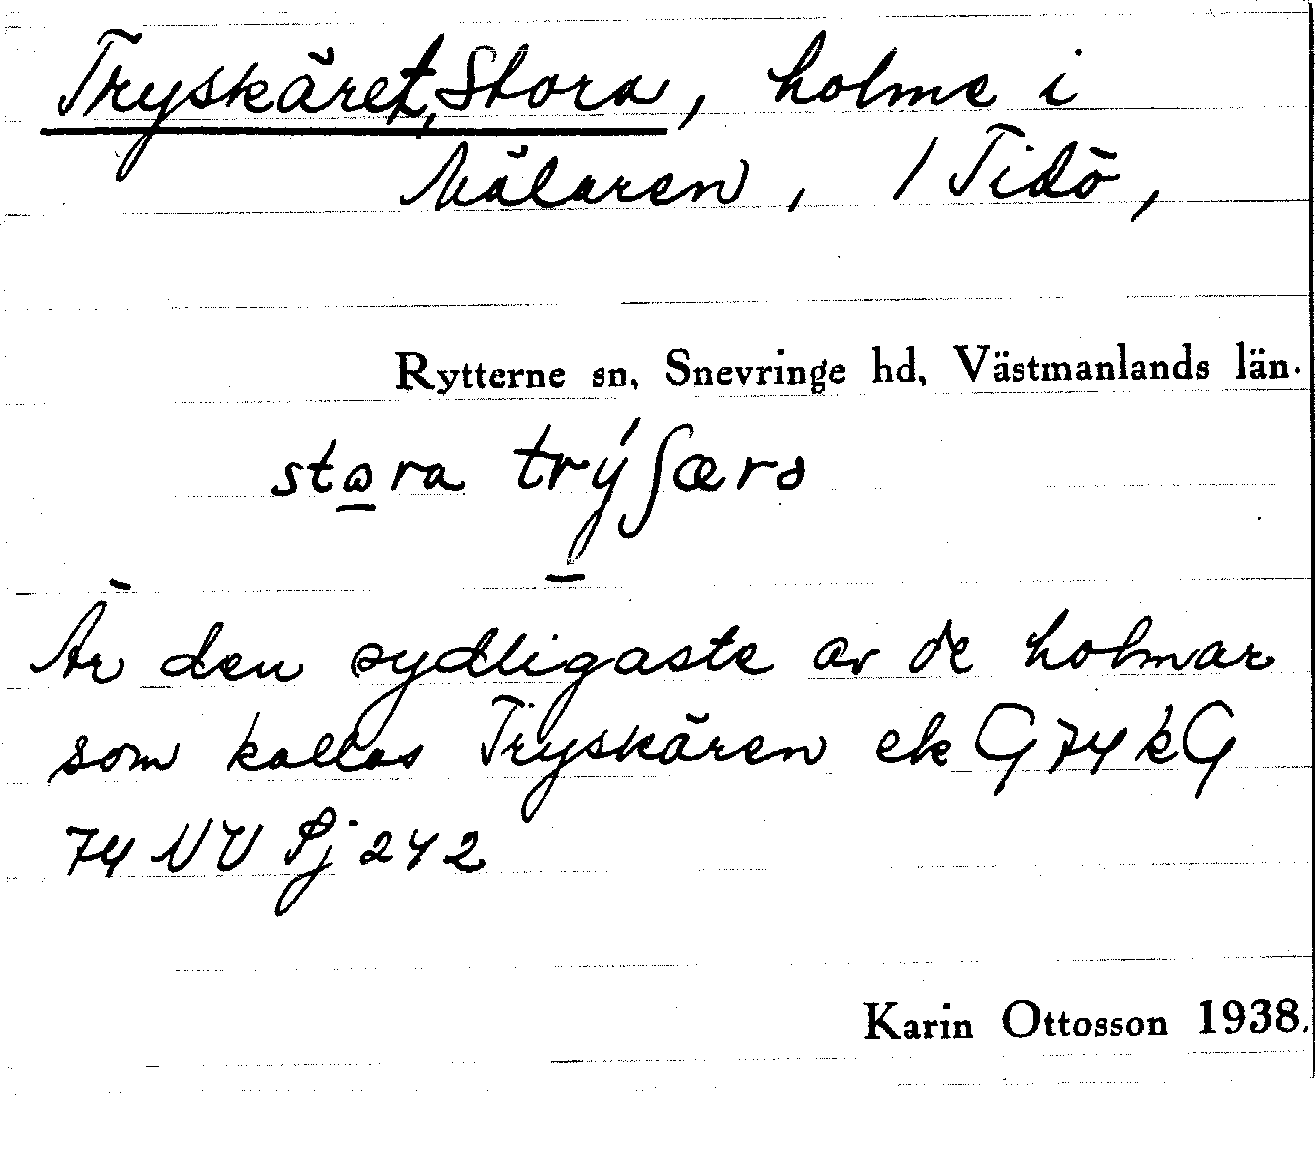 Tryskäret, Stora, holme i
Mälaren, / Tidö,
Rytterne sn, Snevringe hd, Västmanlands län.
stⱺra trýʃærə
Är den sydligaste av de holmar
som kallas Tryskären ek G 74 k G
74 NV Sj 242
Karin Ottosson 1938.